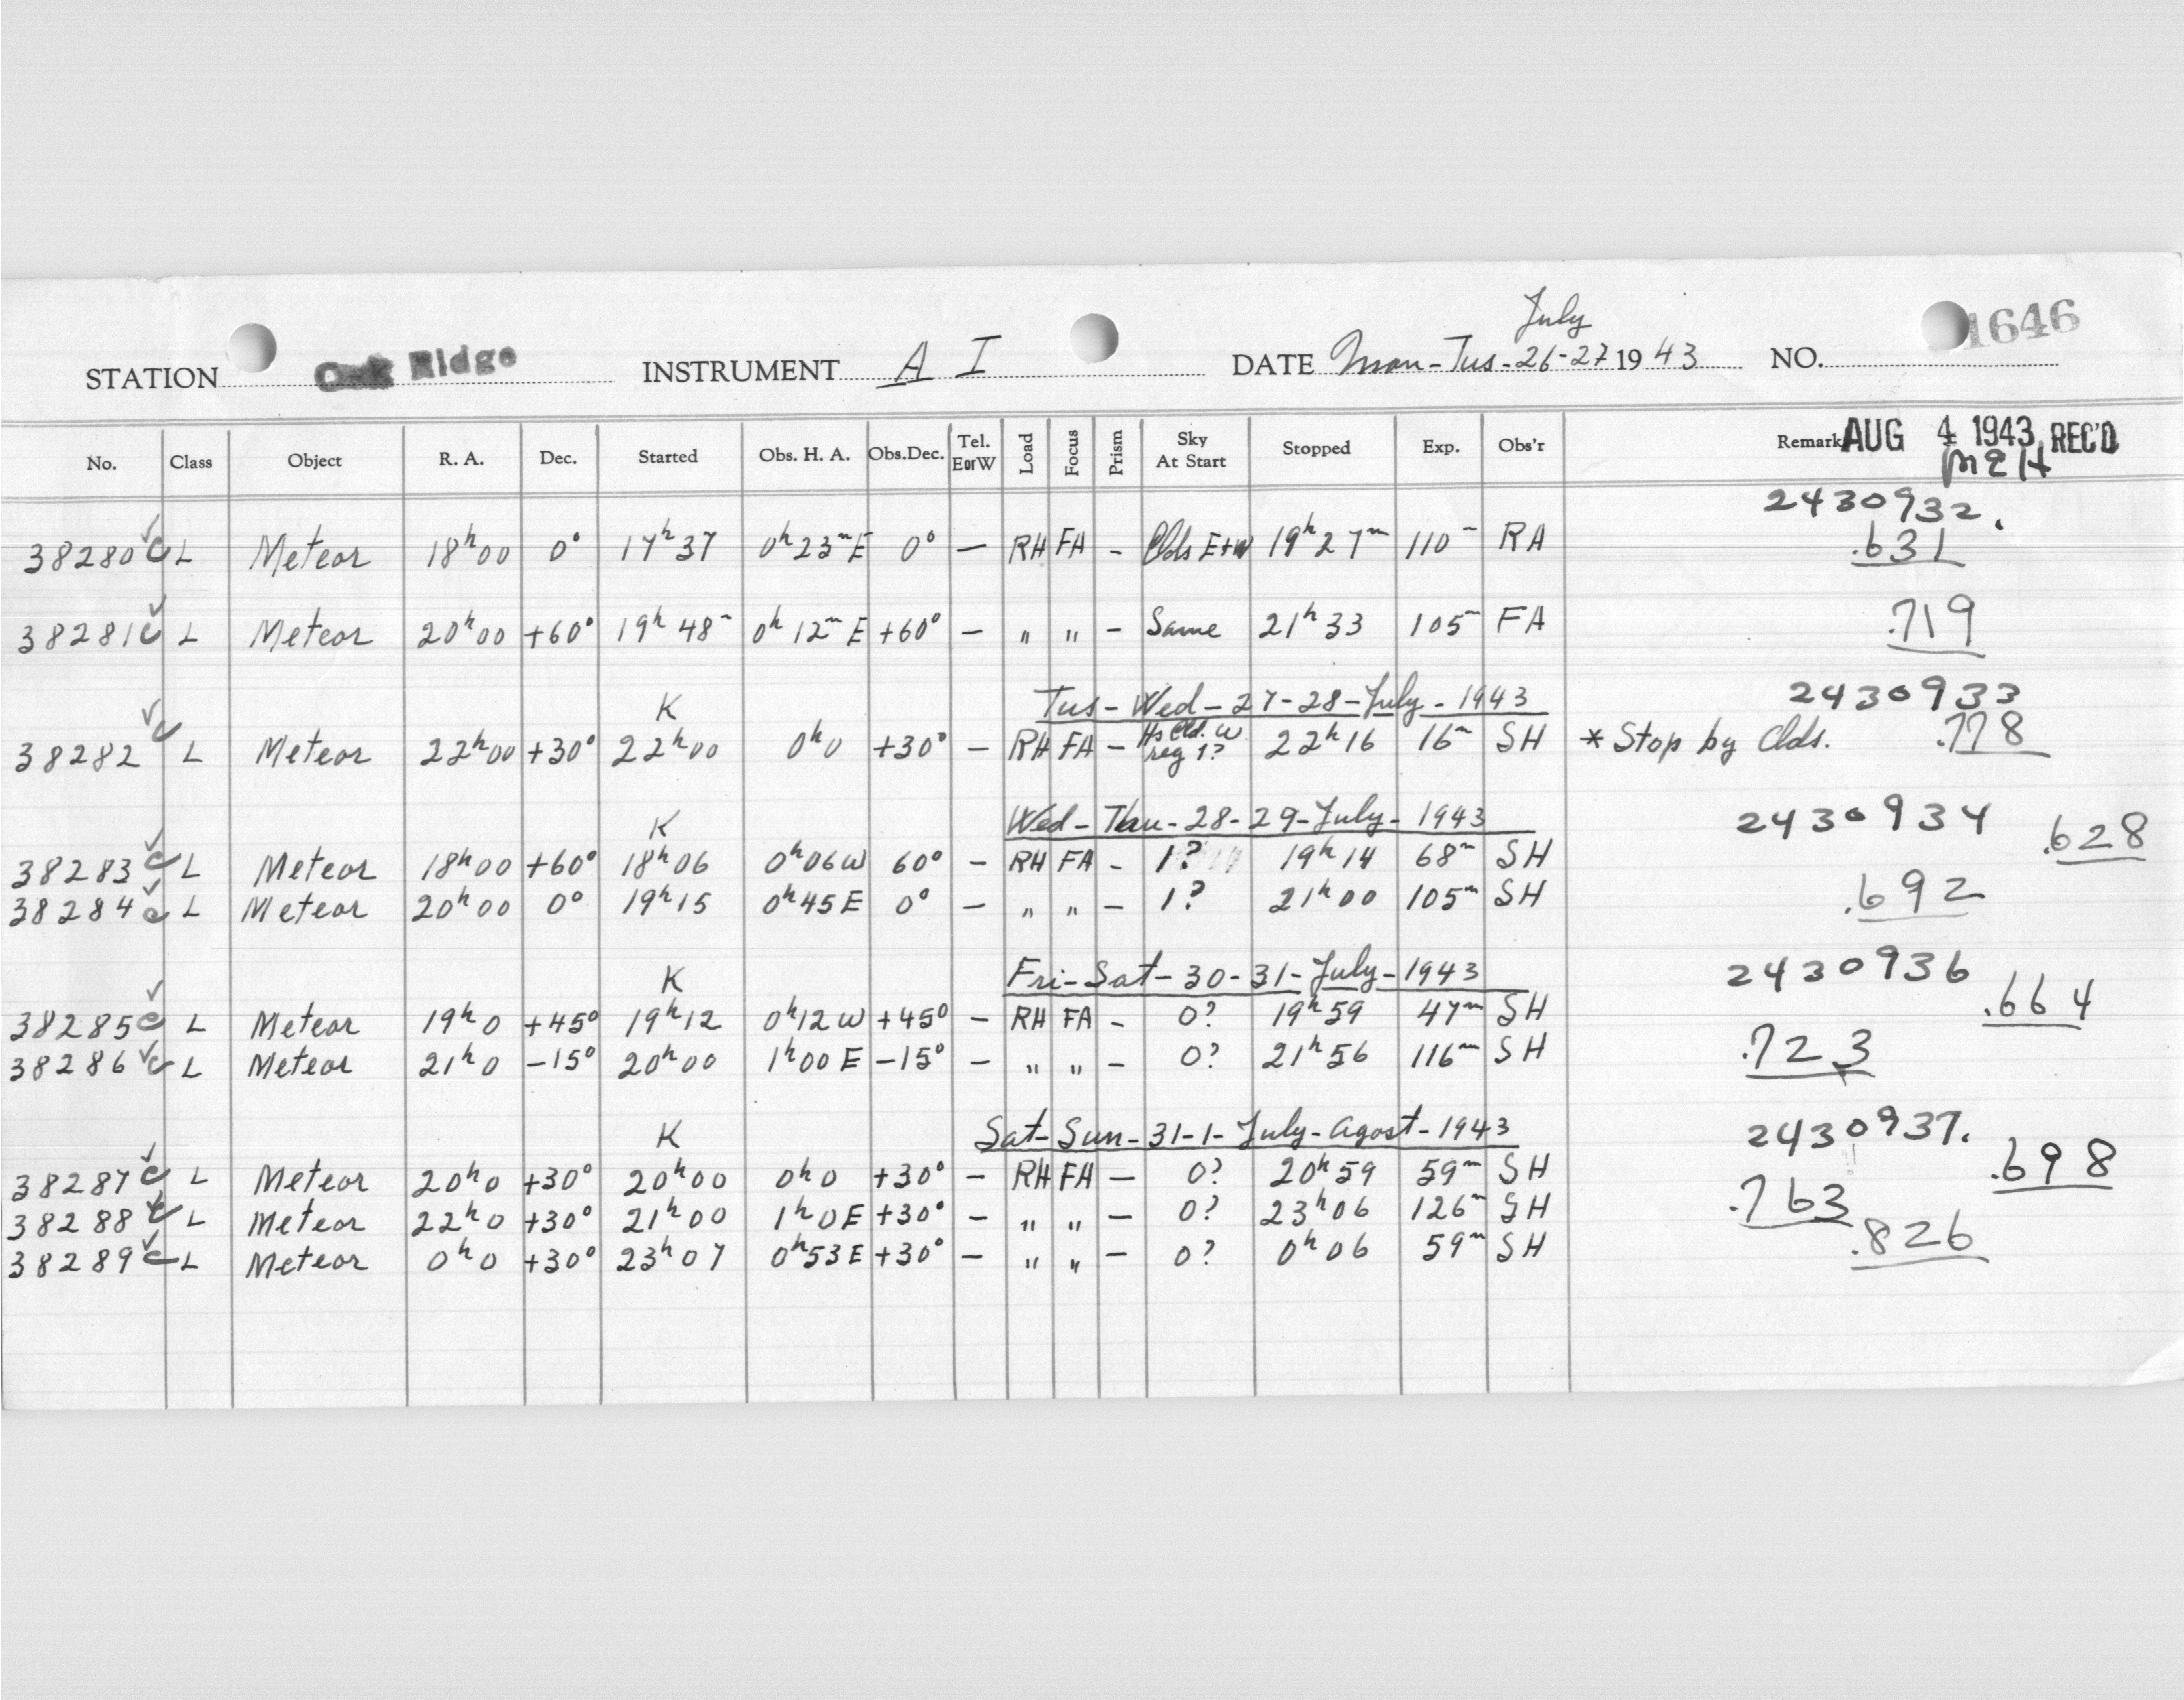 July
1646
STATION Oak Ridge INSTRUMENT A I DATE Mon-Tus-26-27 1943 NO.
No. Class Object R. A. Dec. Started Obs. H. A. Obs.Dec. Tel. EorW Load Focus Prism Sky At Start Stopped Exp. Obs'r Remark AUG 4 1943 REC'D
2430932.
38280 c L Meteor 18h00 0° 17h37 0h23m E 0° — RH FA - Clds E+W 19h27m 110m RA .631
38281 c L Meteor 20h00 +60° 19h48m 0h12m E +60° — " " - Same 21h33 105m FA .719
K Tus-Wed-27-28-July-1943 2430933
38282 c L Meteor 22h00 +30° 22h00 0h0 +30° — RH FA - Hs Cld. W reg 1? 22h16 16m SH * Stop by Clds. .778
K Wed-Thu-28-29-July-1943 2430934 .628
38283 c L Meteor 18h00 +60° 18h06 0h06W 60° — RH FA - 1? 19h14 68m SH
38284 c L Meteor 20h00 0° 19h15 0h45E 0° — " " - 1? 21h00 105m SH .692
K Fri-Sat-30-31-July-1943 2430936
38285 c L Meteor 19h0 +45° 19h12 0h12W +45° — RH FA - 0? 19h59 47m SH .664
38286 c L Meteor 21h0 -15° 20h00 1h00E -15° — " " - 0? 21h56 116m SH .723
K Sat-Sun-31-1-July-Agost-1943 2430937.
38287 c L Meteor 20h0 +30° 20h00 0h0 +30° — RH FA — 0? 20h59 59m SH .698
38288 c L Meteor 22h0 +30° 21h00 1h0E +30° — " " — 0? 23h06 126m SH .763
38289 c L Meteor 0h0 +30° 23h07 0h53E +30° — " " — 0? 0h06 59m SH .826